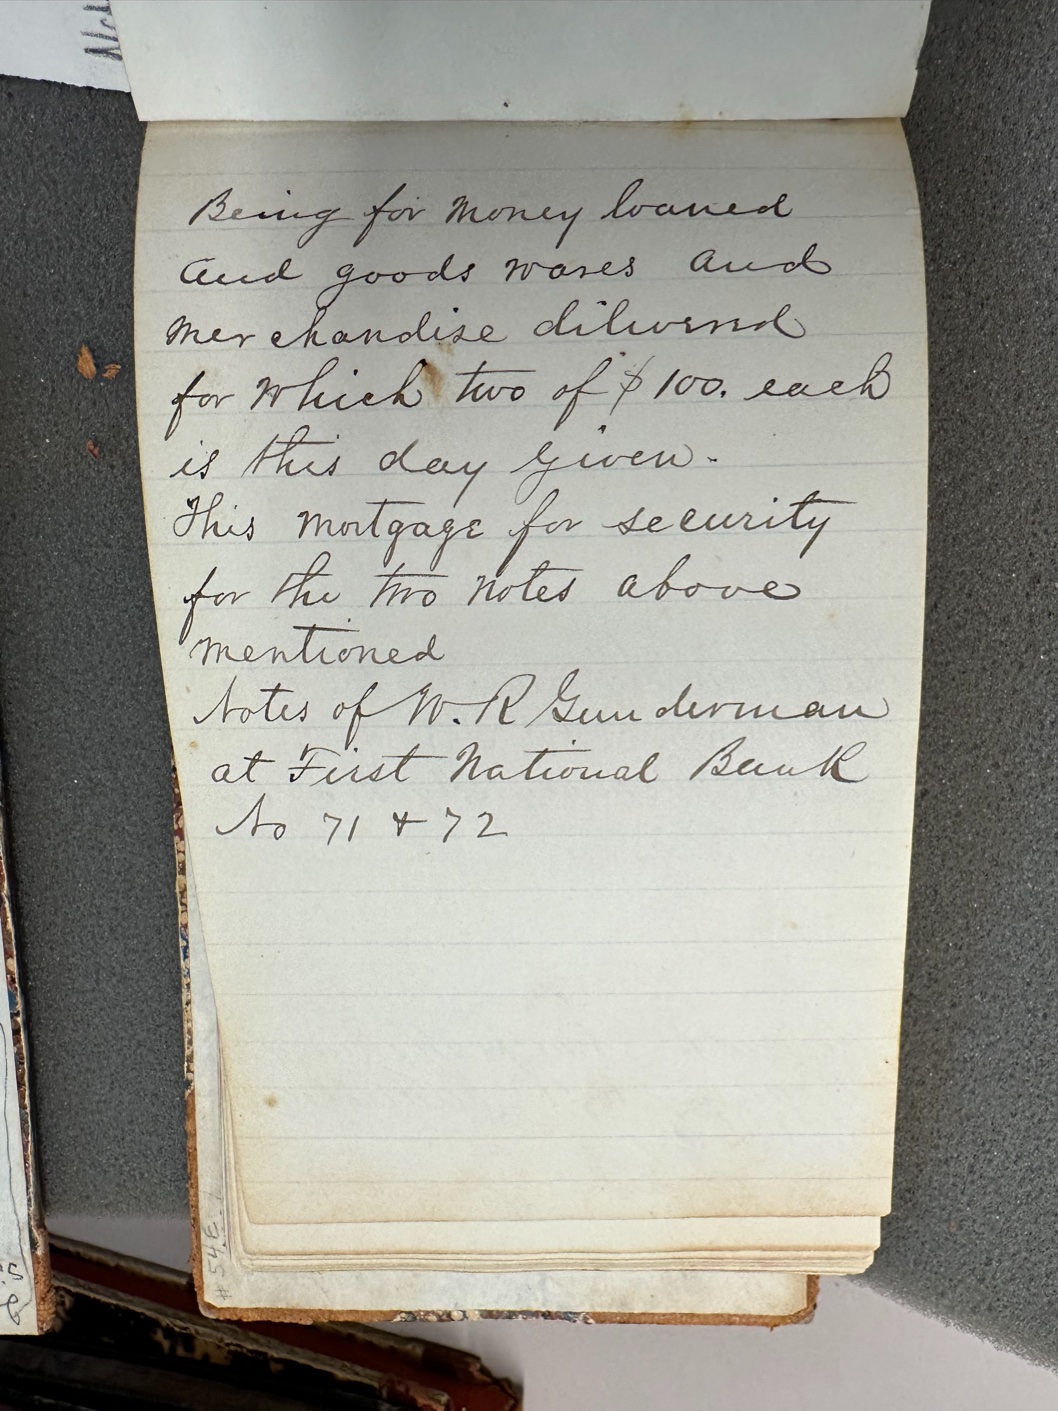 Being for Money loaned
and goods wares and
Merchandise dilivered
for which two of $100. each
is this day given.
This Mortgage for security
for the two notes above
mentioned
Notes of W. R Gunderman
at First National Bank
No 71 & 72
# 54E